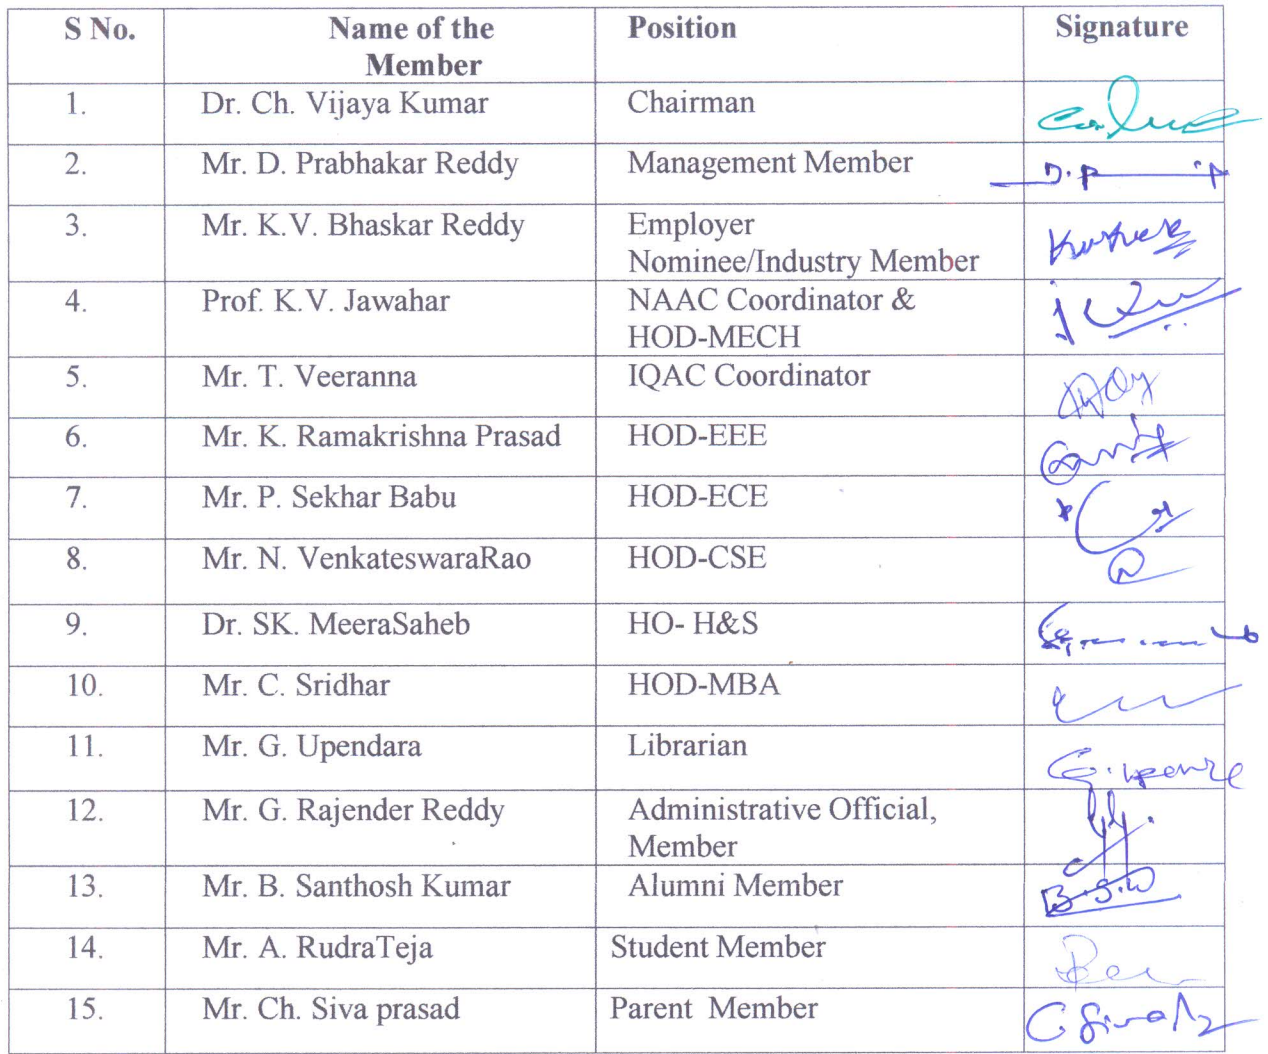 S No. Name of the Member Position Signature
1. Dr. Ch. Vijaya Kumar Chairman
2. Mr. D. Prabhakar Reddy Management Member D.P
3. Mr. K.V. Bhaskar Reddy Employer
Nominee/Industry Member
4. Prof. K.V. Jawahar NAAC Coordinator &
HOD-MECH
5. Mr. T. Veeranna IQAC Coordinator
6. Mr. K. Ramakrishna Prasad HOD-EEE
7. Mr. P. Sekhar Babu HOD-ECE
8. Mr. N. VenkateswaraRao HOD-CSE
9. Dr. SK. MeeraSaheb HO- H&S
10. Mr. C. Sridhar HOD-MBA
11. Mr. G. Upendara Librarian
12. Mr. G. Rajender Reddy Administrative Official,
Member
13. Mr. B. Santhosh Kumar Alumni Member
14. Mr. A. RudraTeja Student Member
15. Mr. Ch. Siva prasad Parent Member